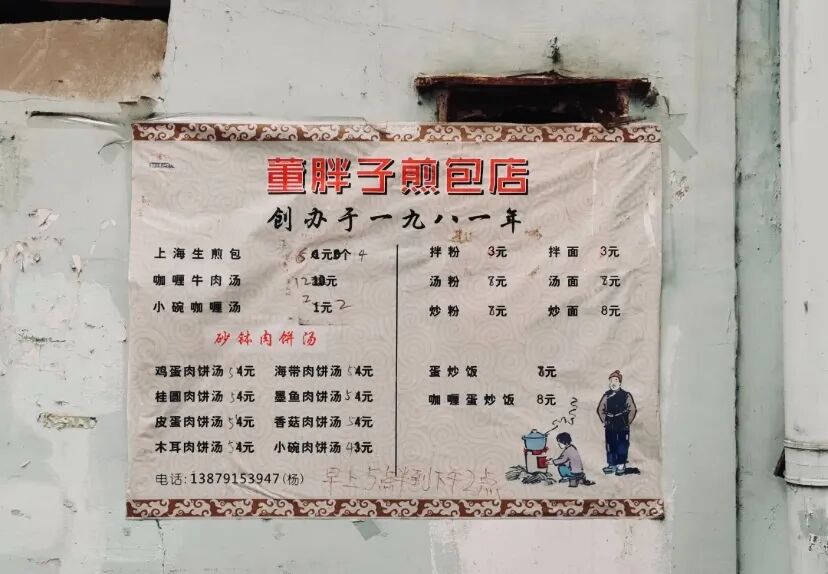 董胖子煎包店
创办于一九八一年
上海生煎包 元 个 4
咖喱牛肉汤 12 元
小碗咖喱汤 1元 2
砂钵肉饼汤
鸡蛋肉饼汤 5 4元 海带肉饼汤 5 4元
桂圆肉饼汤 5 4元 墨鱼肉饼汤 5 4元
皮蛋肉饼汤 5 4元 香菇肉饼汤 5 4元
木耳肉饼汤 5 4元 小碗肉饼汤 4 3元
电话:13879153947(杨) 早上5点半到下午2点
拌粉 3元 拌面 3元
汤粉 元 汤面 元
炒粉 元 炒面 8元
蛋炒饭 元
咖喱蛋炒饭 8元